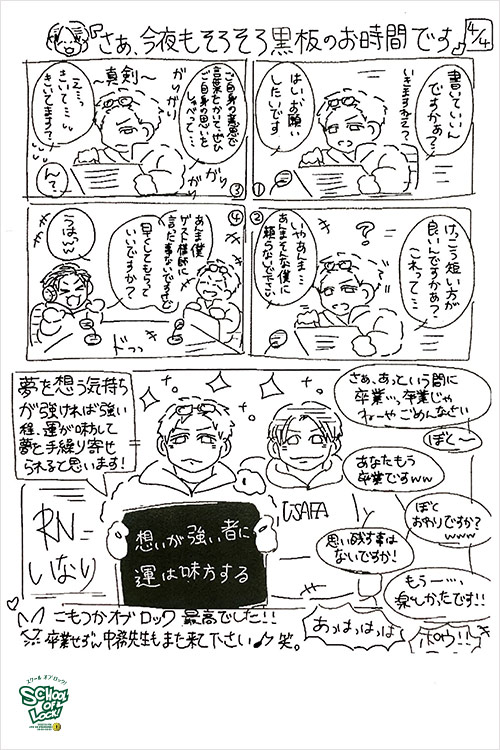 『さぁ、今夜もそろそろ黒板のお時間です』
4/4
書いていいんですかぁ?
いきますか?
はい、お願いしたいです
①
けっこう短い方が良いんですかぁ?これって…
?
いやあんま…あんまそんな僕に頼らないで下さい
②
〜真剣〜
がりがり
ご自身の意思で言葉をかいて、ぜひご自身の思いをしゃべって…
え…きいて…きいてます?
ん?
がり
がり
③
④
あんま僕ゲスト様師に言った事ないですけど
早くしてもらっていいですか?
うはww
ドっっ
夢を想う気持ち
が強ければ強い
程、運が味方して
夢を手繰り寄せ
られると思います!
さぁ、あっという間に
卒業…、卒業じゃ
ねーや ごめんなさい
ぽと〜
あなたもう
卒業ですww
ぽと
おわりですか?
www
思い残す事は
ないですか!
もうー…、
楽しかったです!!
RN
いなり
USAFA
想いが強い者に
運は味方する
こもつかオブロック 最高でした!!
卒業せずん中務先生もまた来て下さい♪笑。
あっはっはっは
ポウ!!
スクール オブ ロック!
SCHOOL
OF
LOCK!